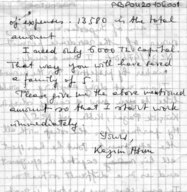 of expenses. 13580 is the total
amount
I need only 6000 TL capital.
That way you will have saved
a family of 5.
Please give me the above mentioned
amount so that I start work
immediately.
Yours,
Kazim